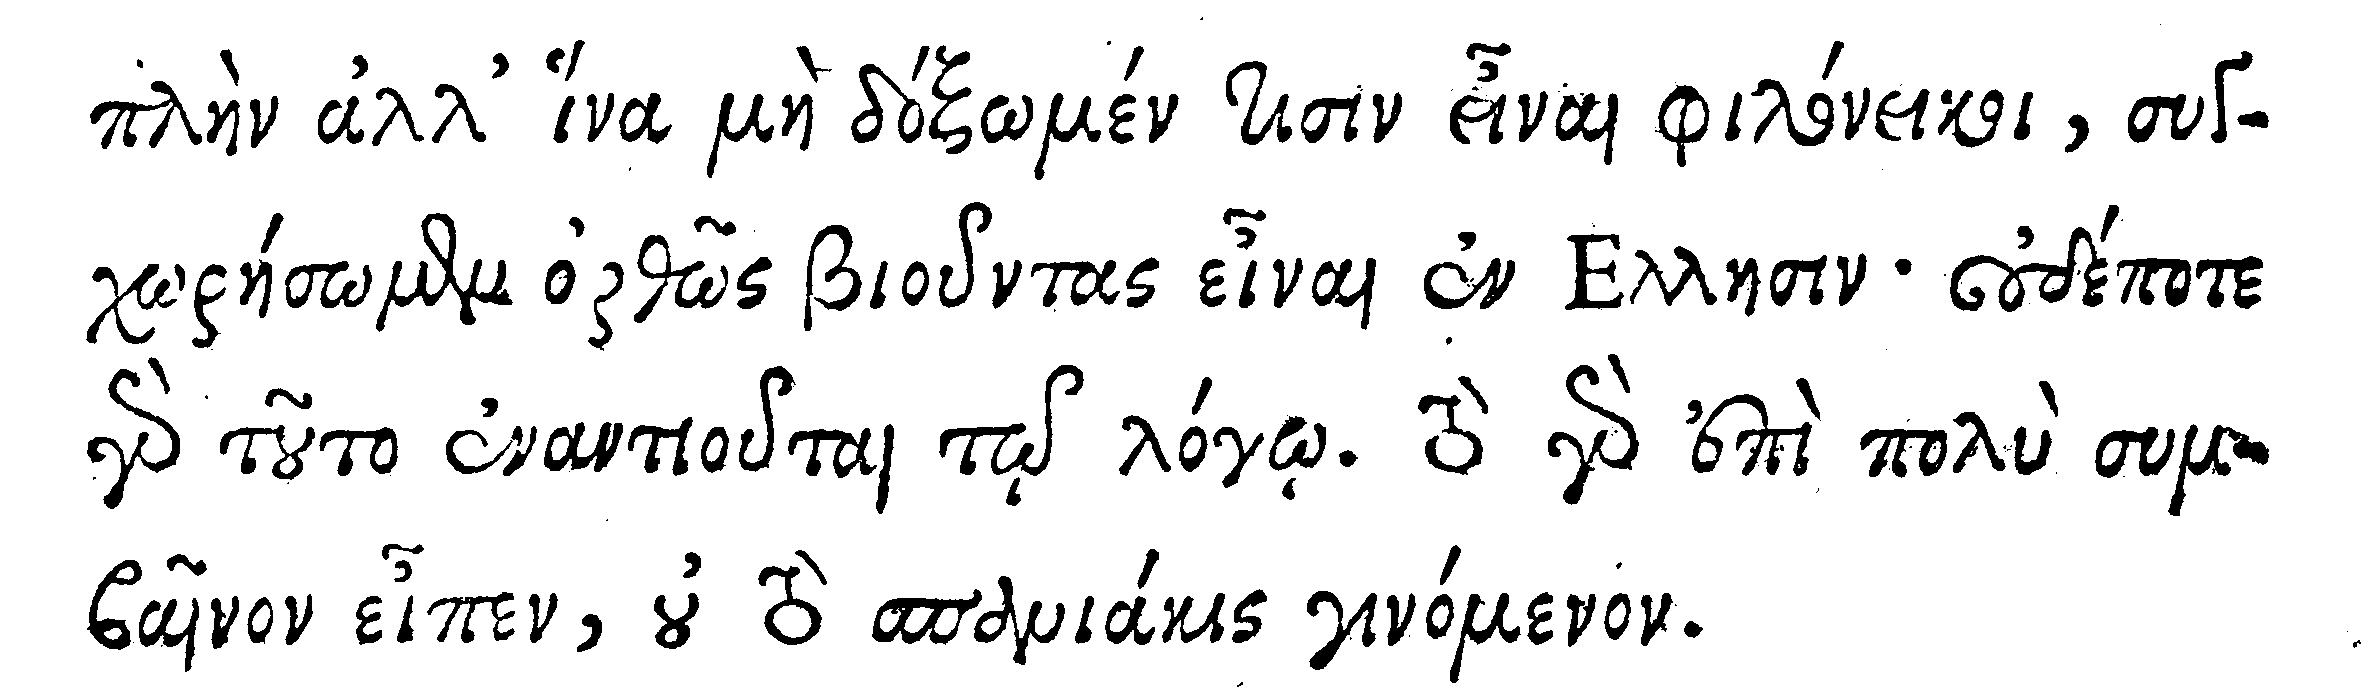 πλὴν ἀλλ' ἵνα μὴ δόξωμέν τισιν εἶναι φιλόνεικοι, συγ-
χωρήσωμεν ὀρθῶς βιοῦντας εἶναι ἐν Ελλησιν· οὐδέποτε
γὰρ τοῦτο ἐναντιοῦται τῷ λόγῳ. τὸ γὰρ ἐπὶ πολὺ συμ-
βαῖνον εἶπεν, οὐ τὸ σπανιάκις γινόμενον.